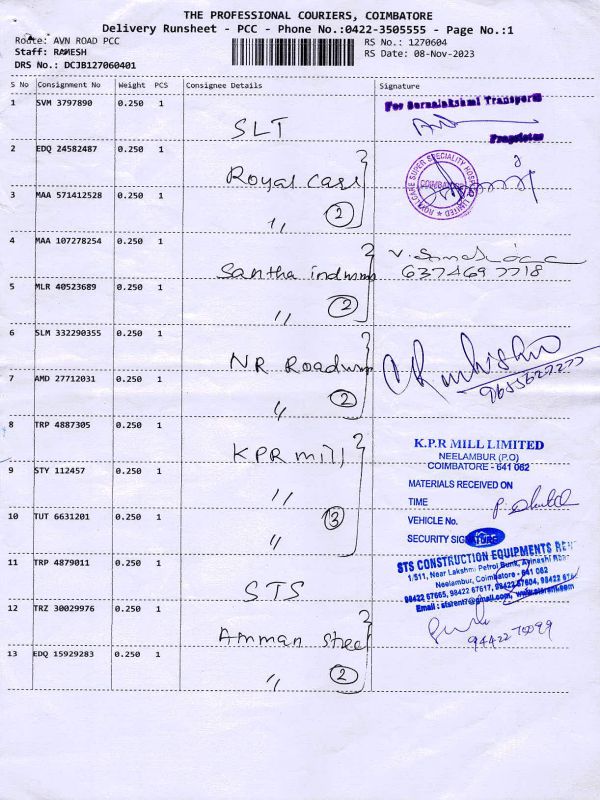 THE PROFESSIONAL COURIERS, COIMBATORE
Delivery Runsheet - PCC - Phone No.:0422-3505555 - Page No.:1
Route: AVN ROAD PCC RS No.: 1270604
Staff: RAMESH RS Date: 08-Nov-2023
DRS No.: DCJB127060401
S No Consignment No Weight PCS Consignee Details Signature
1 SVM 3797890 0.250 1 SLT
For Sornalakshmi Transports
Proprietor
2 EDQ 24582487 0.250 1 Royal Care
ROYAL CARE SUPER SPECIALITY HOSPITAL LIMITED
COIMBATORE
3 MAA 571412528 0.250 1 〃 2
4 MAA 107278254 0.250 1 Santha
6374697718
5 MLR 40523689 0.250 1 〃 2
6 SLM 332290355 0.250 1 NR
7 AMD 27712031 0.250 1 〃 2
8 TRP 4887305 0.250 1 KPR mill
K.P.R MILL LIMITED
NEELAMBUR (P.O)
COIMBATORE - 641 062
9 STY 112457 0.250 1 〃
MATERIALS RECEIVED ON
TIME
10 TUT 6631201 0.250 1 〃 3
VEHICLE No.
SECURITY SIGNATURE
11 TRP 4879011 0.250 1 STS
STS CONSTRUCTION EQUIPMENTS
1/511, Near Lakshmi Petrol Bunk, Avinashi Road
Neelambur, Coimbatore - 641 062
98422 67665, 98422 67617, 98422 67604, 98422
Email : stsrent7@gmail.com, www.stsrent.com
12 TRZ 30029976 0.250 1 Amman steel
13 EDQ 15929283 0.250 1 〃 2